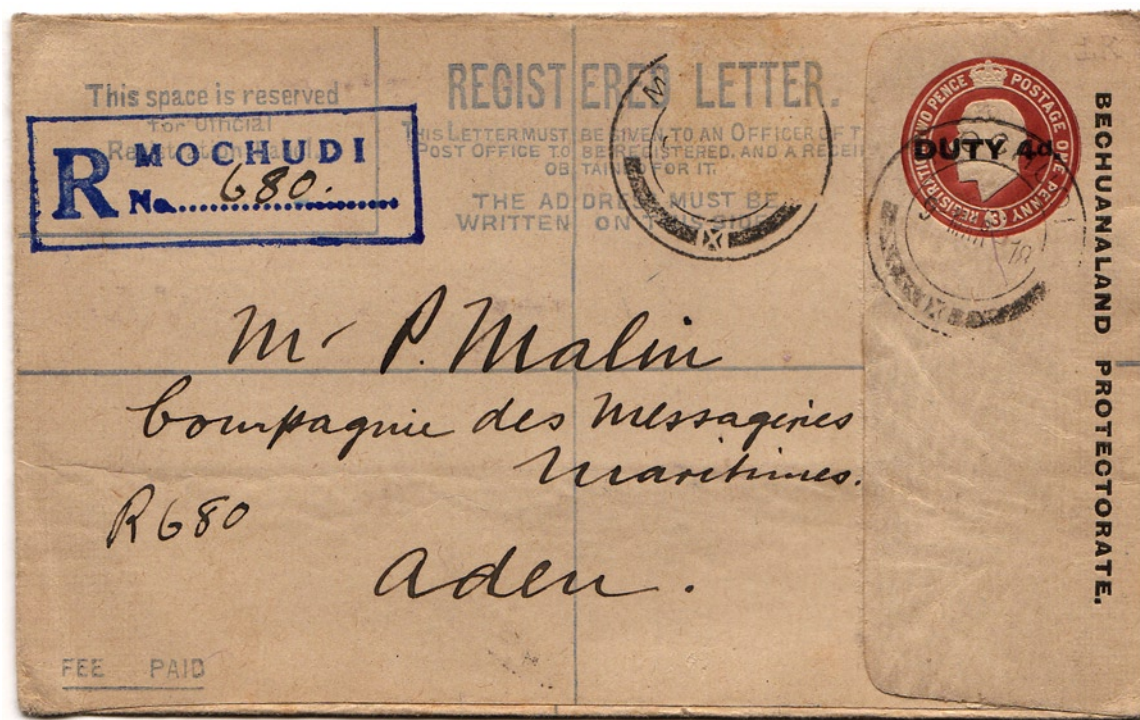 This space is reserved
for Official
REGISTERED LETTER.
THIS LETTER MUST BE GIVEN TO AN OFFICER OF T
POST OFFICE TO BE REGISTERED, AND A RECEI
OBTAINED FOR IT.
THE ADDRESS MUST BE
WRITTEN ON THIS SIDE
R MOCHUDI
No. 680.
TWO PENCE POSTAGE ONE PENNY REGISTRATION
DUTY 4d.
BECHUANALAND PROTECTORATE.
Mr P. Malin
Compagnie des Messageries
Maritimes.
R680
Aden.
FEE PAID